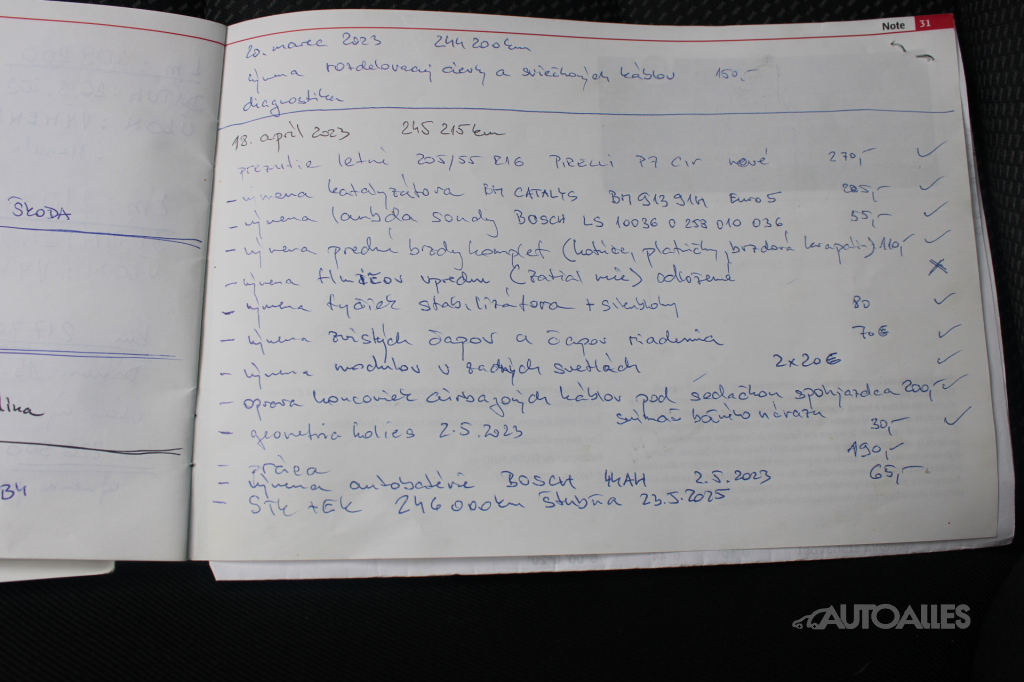 Note 31
20. marec 2023 244 200 km
výmena rozdelovacej cievky a sviečkových káblov 150,-
diagnostika
18. apríl 2023 245 215 km
prezutie letné 205/55 R16 PIRELLI P7 Cin nové 270,-
- výmena katalyzátora BM CATALYS BM91391H Euro 5 225,-
- výmena lambda sondy BOSCH LS 10036 0 258 010 036 55,-
- výmena predné brzdy komplet (kotúče, platničky, brzdová kvapalin-) 110,-
- výmena tlmičov vpredu (zatiaľ nie) odložené
- výmena tyčiek stabilizátora + silenbloky 80
- výmena zvislých čapov a čapov riadenia 70€
- výmena modulov v zadných svetlách 2x20€
- oprava koncoviek airbagových káblov pod sedačkou spolujazdca 200,-
snímač bočného nárazu
- geometria kolies 2.5.2023 30,-
- práca 190,-
- výmena autobatérie BOSCH 44AH 2.5.2023 65,-
- STK + EK 246 000km Štubňa 23.5.2025
ŠKODA
lina
B4
AUTOALLES